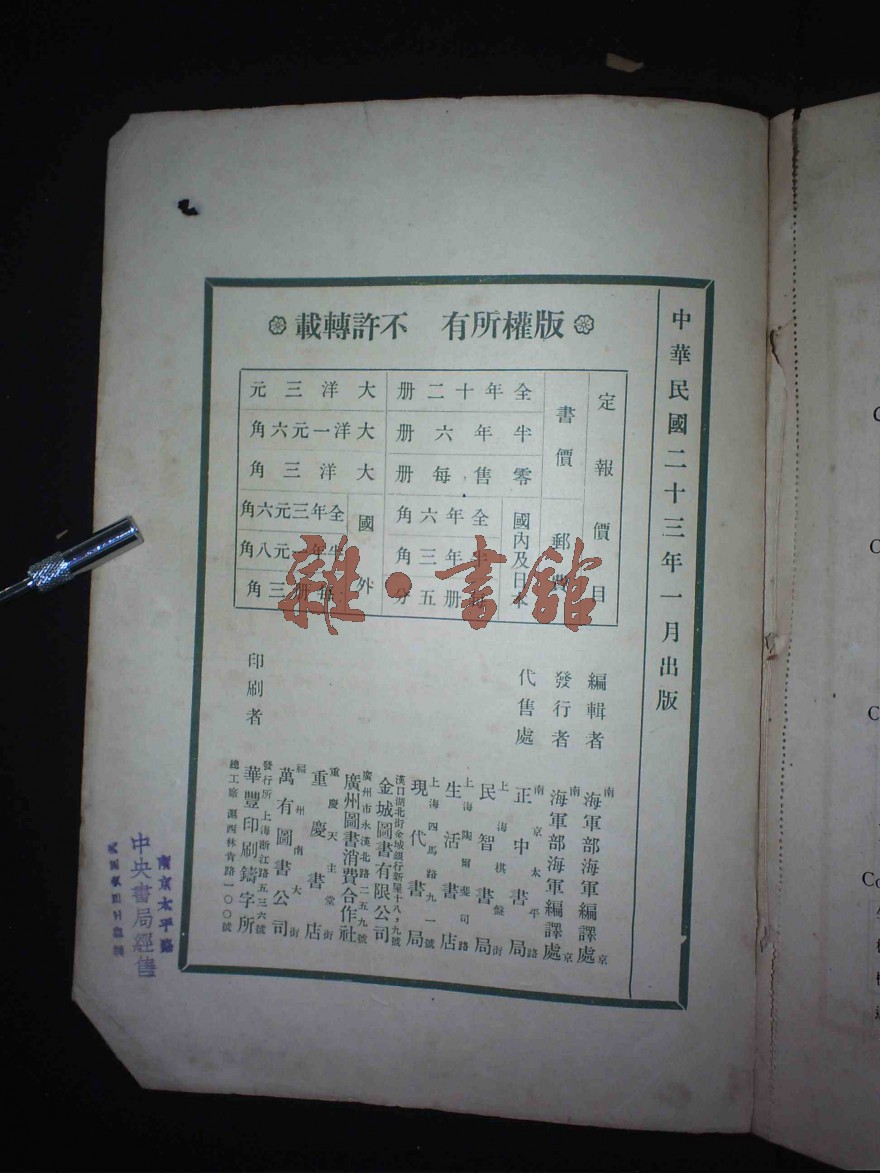 中華民國二十三年一月出版
版權所有　不許轉載
定報價目
書價
全年十二册　大洋三元
半年六册　大洋一元六角
零售每册　大洋三角
郵費
國內及日本
全年六角
半年三角
每册五分
國外
全年三元六角
半年一元八角
每册三角
編輯者　南京　海軍部海軍編譯處
發行者　南京　海軍部海軍編譯處
代售處
南京太平路　正中書局
上海棋盤街　民智書局
上海陶爾斐司路　生活書店
上海四馬路九一號　現代書局
漢口湖北街金城銀行新屋十八，九號　金城圖書有限公司
廣州市永漢北路二五九號　廣州圖書消費合作社
重慶天主堂街　重慶書店
福州南大街　萬有圖書公司
印刷者　華豐印刷鑄字所
發行所　上海浙江路五三六號
總工廠　滬西林肯路一〇〇號
南京太平路
中央書局經售
雜·書館